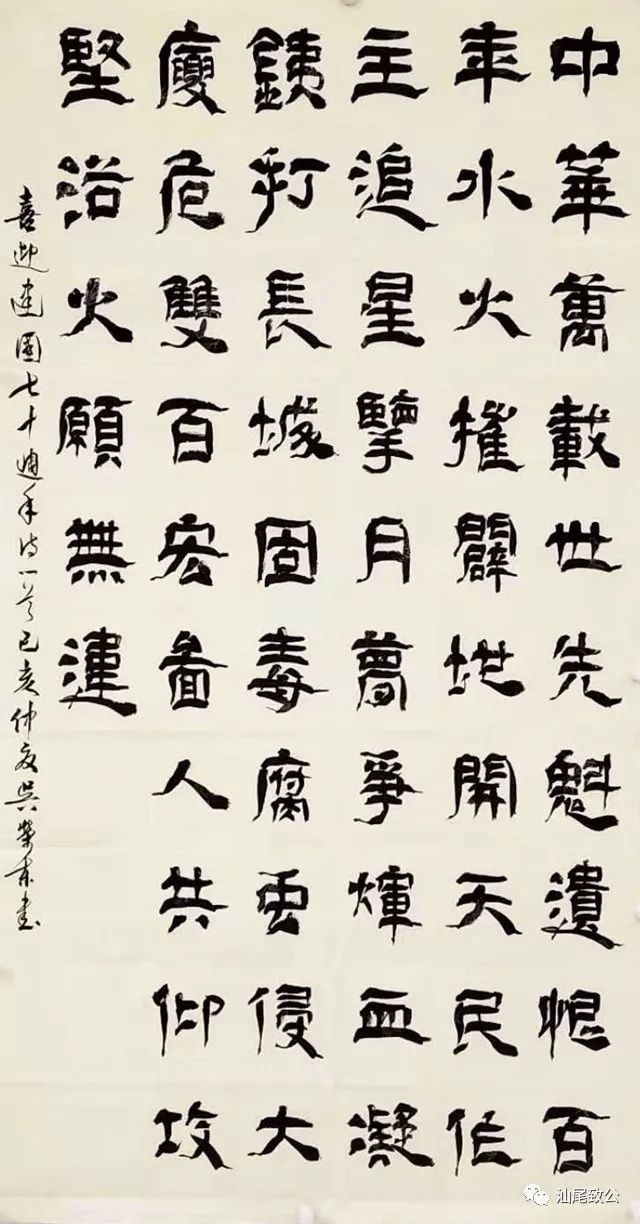 中華萬載世先魁遺恨百
年水火摧闢地開天民作
主追星擥月夢爭輝血凝
鐵打長城固毒腐虫侵大
廈危雙百宏圖人共仰攻
堅浴火願無違
喜迎建國七十週年詩一首己亥仲夏吳榮書
汕尾致公